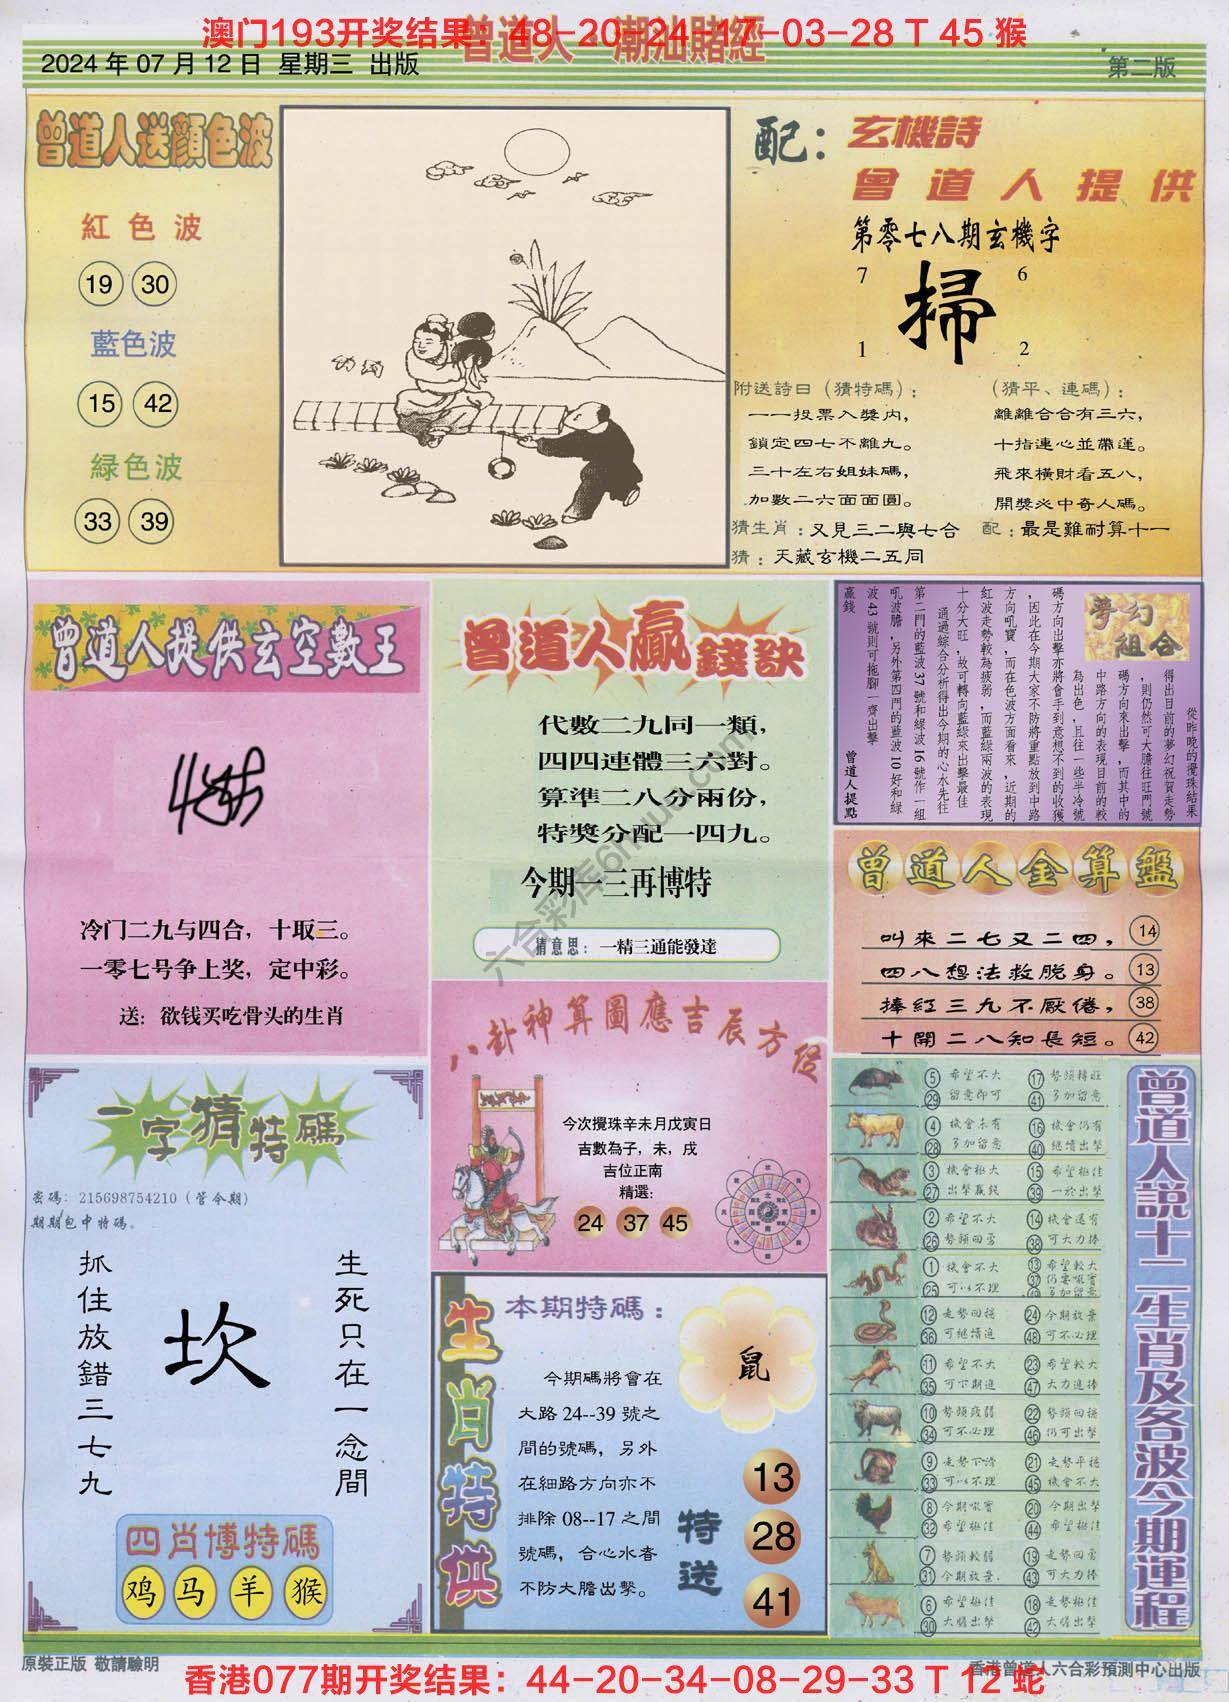 澳门193开奖结果：48-20-24-17-03-28 T 45 猴
曾道人 潮汕賭經
2024 年 07 月 12 日 星期三 出版
第二版
曾道人送顏色波
紅色波
19 30
藍色波
15 42
緑色波
33 39
配：玄機詩
曾道人提供
第零七八期玄機字
7 6
掃
1 2
附送詩曰（猜特碼）：
一一投票入獎内，
鎖定四七不離九。
三十左右姐妹碼，
加數二六面面圓。
（猜平、連碼）：
離離合合有三六，
十指連心並帶蓮。
飛來橫財看五八，
開獎必中奇人碼。
猜生肖：又見三二與七合 配：最是難耐算十一
猜：天藏玄機二五同
曾道人提供玄空數王
冷门二九与四合，十取三。
一零七号争上奖，定中彩。
送：欲钱买吃骨头的生肖
曾道人贏錢訣
代數二九同一類，
四四連體三六對。
算準二八分兩份，
特獎分配一四九。
今期一三再博特
猜意思：一精三通能發達
夢幻組合
從昨晚的攪珠結果
得出目前的夢幻祝賀走勢
，則仍然可大膽往旺門號
碼方向來出擊，而其中的
中路方向的表現目前的較
為出色，且往一些半冷號
碼方向出擊亦將會手到意想不到的收獲
，因此在今期大家不防將重點放到中路
方向吼寶，而在色波方面看來，近期的
紅波走勢較為疲弱，而藍綠兩波的表現
十分大旺，故可轉向藍綠來出擊最佳
通過綜合分析得出今期的心水先往
第二門的藍波37號和綠波16號作一組
吼波膽，另外第四門的藍波10好和綠
波43號則可拖腳一齊出擊
贏錢
曾道人提點
曾道人金算盤
叫來二七又二四， 14
四八想法救脫身。 13
捧紅三九不厭倦， 38
十開二八知長短。 42
八卦神算圖應吉辰方位
今次攪珠辛未月戊寅日
吉數為子，未，戌
吉位正南
精選：
24 37 45
一字猜特碼
密碼：215698754210（管今期）
期期包中特碼。
生死只在一念間
坎
抓住放錯三七九
四肖博特碼
鸡 马 羊 猴
生肖特供
本期特碼：
鼠
今期碼將會在
大路 24--39 號之
間的號碼，另外
在細路方向亦不
排除 08--17 之間
號碼，合心水者
不防大膽出擊。
特送
13
28
41
曾道人説十二生肖及各波今期運程
5 希望不大 17 勢頭轉旺
29 留意即可 41 多加留意
4 機會未有 16 機會仍有
28 多加留意 40 繼續出擊
3 機會極大 15 希望極佳
27 出擊贏錢 39 一於出擊
2 希望不大 14 機會還有
26 勢頭回勇 38 可大力捧
1 機會不大 13 希望較大
25 可以不理
12 走勢回穩 24 今期放棄
36 可繼續追 48 可不必理
11 希望不大 23 希望較大
35 可下期追 47 大力追捧
10 勢頭疲弱 22 勢頭回穩
34 可不必理 46 仍可出擊
9 走勢下滑 21 走勢平穩
33 可以不理 45 機會不大
8 今期吼寶 20 今期出擊
32 希望極佳 44 希望極佳
7 勢頭較弱 19 走勢回勇
31 今期放棄. 43 可大力捧
6 希望極佳 18 走勢極佳
30 大膽出擊 42 大膽出擊
六合彩库6huu.com
原裝正版 敬請驗明
香港曾道人六合彩預測中心出版
香港077期开奖结果：44-20-34-08-29-33 T 12 蛇